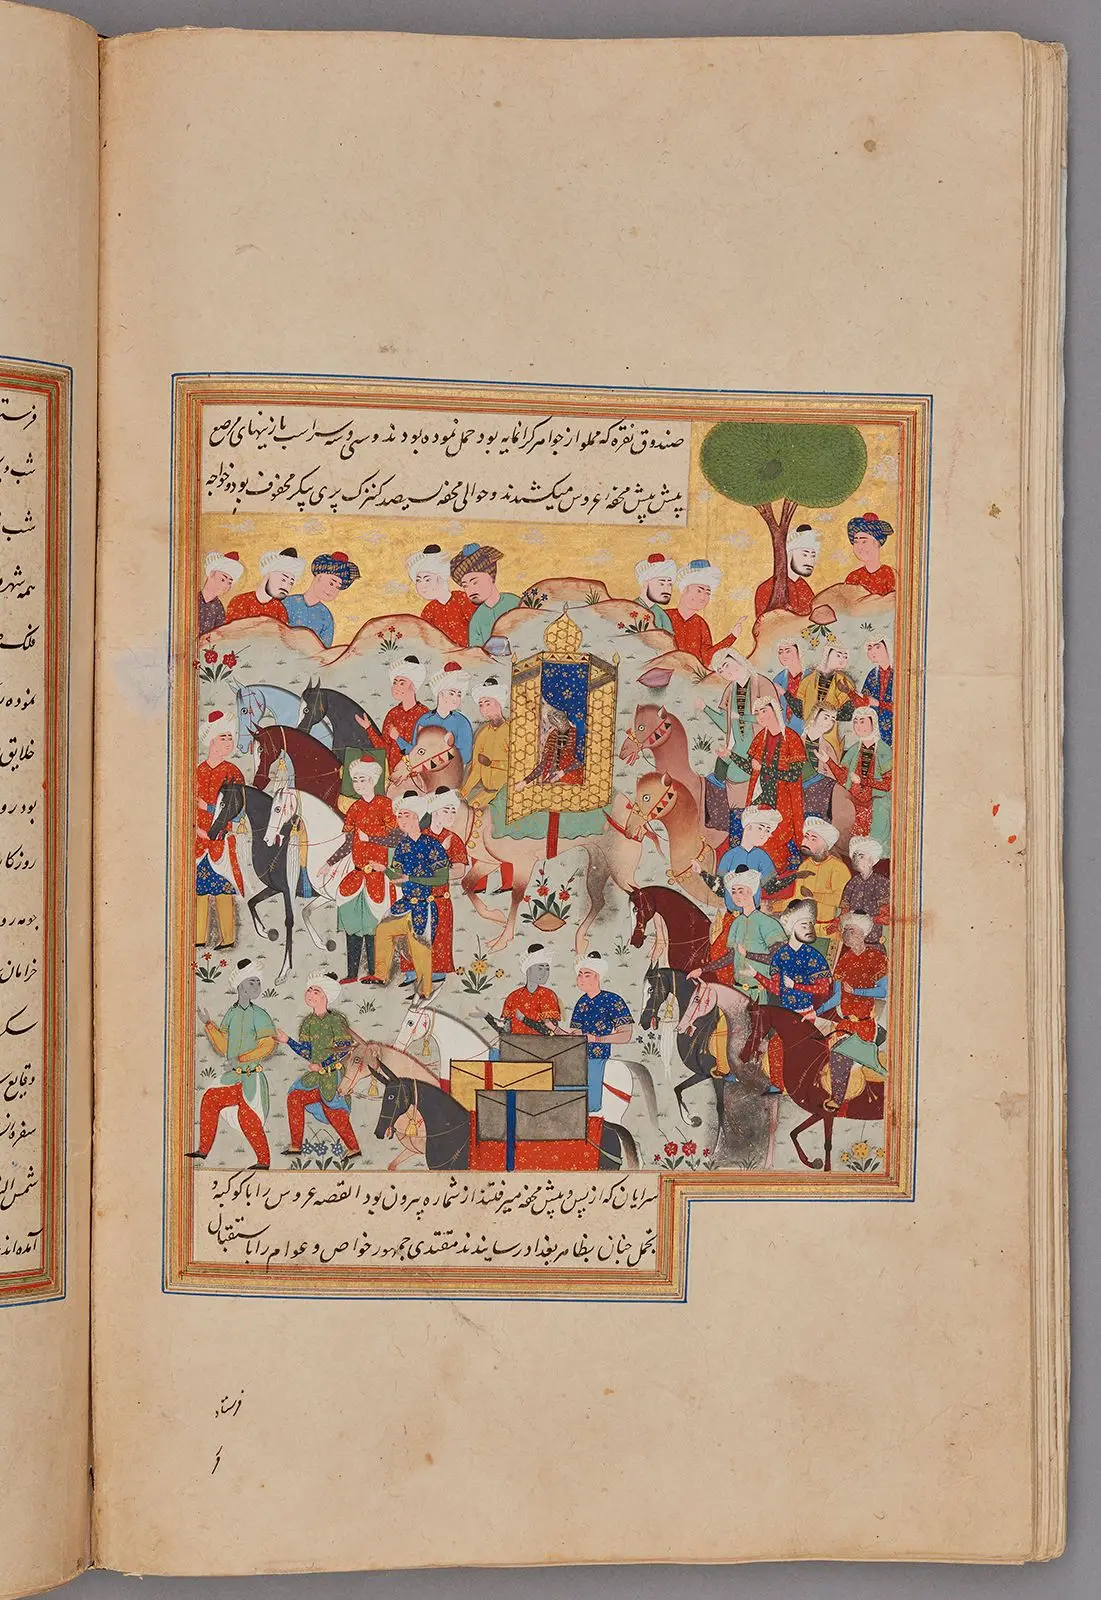 صندوق نقره که مملو از جواهر کرانمایه بود حمل نموده بودند و سی و سه سر اسب با زینهای مرصع
پیش پیش محفه عروس میکشیدند و حوالی محفه سیصد کنیزک پری پیکر محفوف بود و خواجه
سرایان که از پس و پیش محفه میرفتند از شماره بیرون بود القصه عروس را با کوکبه و
تجمل چنان بظاهر بغداد رسانیدند مقتدی جمهور خواص و عوام را باستقبال
فرستاد
شب
همه شهر
نموده
خلایق
بود
خرامان
وقایع
شمس
آمده اند